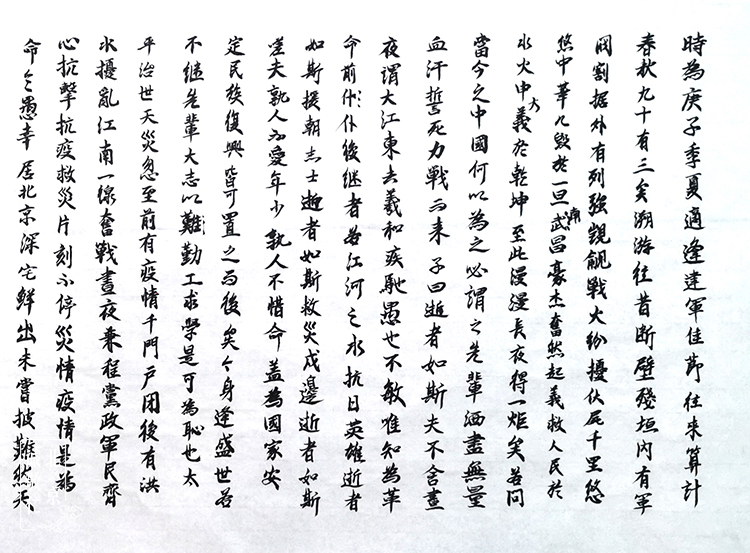 時為庚子季夏適逢建軍佳節往來算計
春秋九十有三矣溯游往昔斷壁殘垣內有軍
閥割据外有列強覬覦戰火紛擾伏尸千里悠
悠中華几毀於一旦武昌南豪杰奮然起義救人民於
水火中大義於乾坤至此漫漫長夜得一炬矣若問
當今之中國何以為之必謂之先輩洒盡無量
血汗誓死力戰而来子曰逝者如斯夫不舍晝
夜謂大江東去羲和疾馳愚也不敏唯知為革
命前仆後继者若江河之水抗日英雄逝者
如斯援朝志士逝者如斯救災戍邊逝者如斯
嗟夫孰人不愛年少孰人不惜命盖為國家安
定民族復興皆可置之而後矣今身逢盛世若
不继先輩大志以難勤工求學是可為恥也太
平治世天災忽至前有疫情千門戶閉後有洪
水擾亂江南一線奮戰晝夜兼程黨政軍民齊
心抗擊抗疫救災片刻不停災情疫情是為
命令愚幸居北京深宅鮮出未嘗披難然天